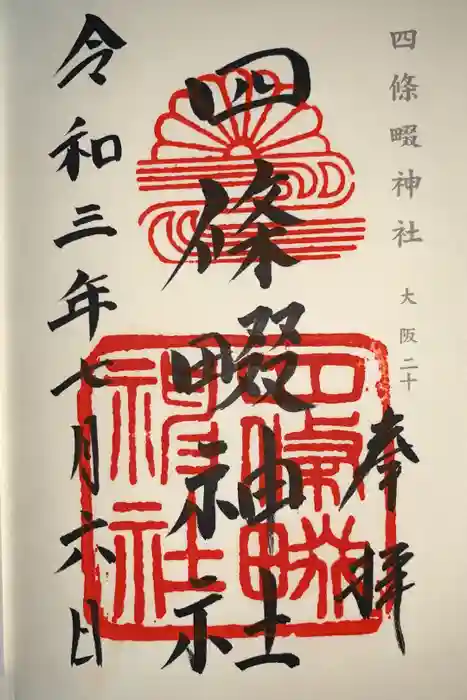 四條畷神社 大阪二十
奉拝
四條畷神社
令和三年七月六日
四條畷神社